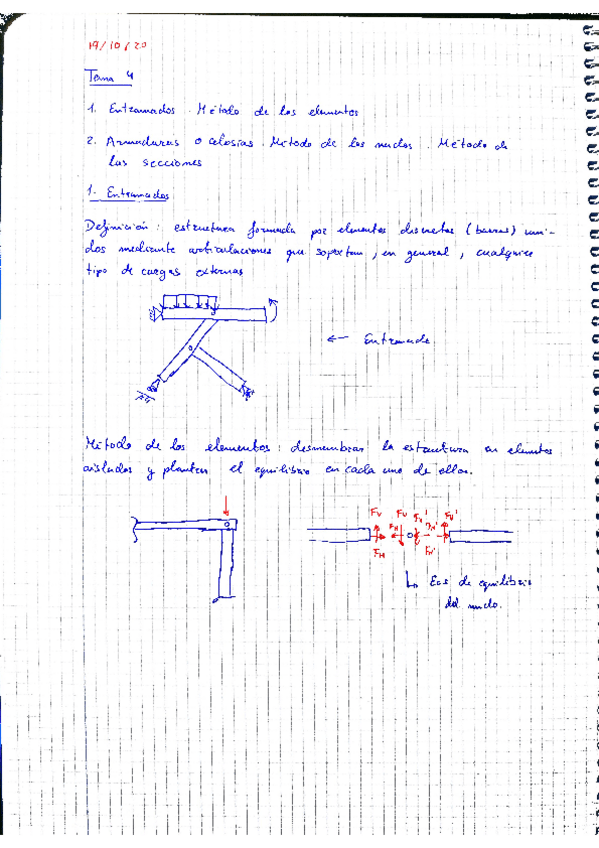 19/10/20
Tema 4
1. Entramados. Método de los elementos
2. Armaduras o celosías. Método de los nudos. Método de
las secciones
1. Entramados
Definición: estructura formada por elementos discretos (barras) uni-
dos mediante articulaciones que soportan, en general, cualquier
tipo de cargas externas
← Entramado
Método de los elementos: desmembrar la estructura en elementos
aislados y plantear el equilibrio en cada uno de ellos.
Fv Fv Fv' Fv'
FH FH FH'
FH FH'
Ecs de equilibrio
del nudo.